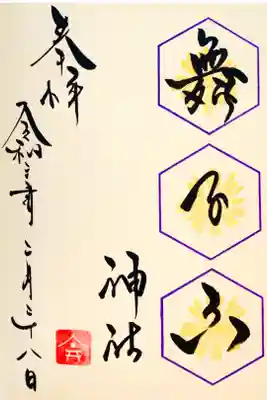 舞子六
神社
奉拝
令和三年二月二十八日